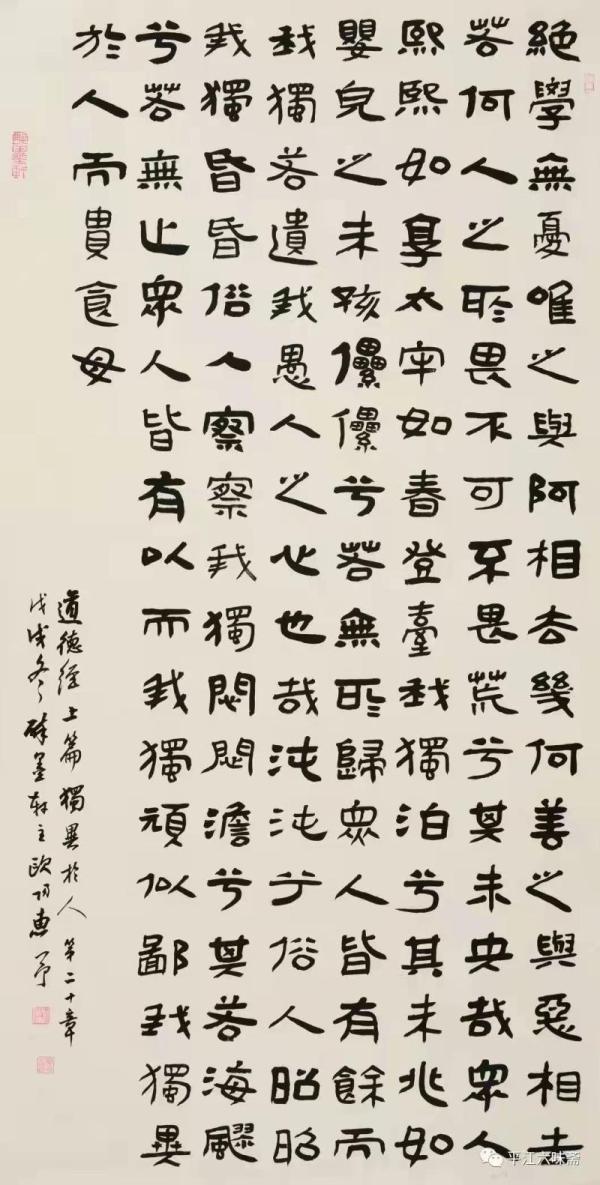 絕學無憂唯之與阿相去幾何善之與惡相去
若何人之所畏不可不畏荒兮其未央哉眾人
熙熙如享太牢如春登臺我獨泊兮其未兆如
嬰兒之未孩儽儽兮若無所歸眾人皆有餘而
我獨若遺我愚人之心也哉沌沌兮俗人昭昭
我獨昏昏俗人察察我獨悶悶澹兮其若海飂
兮若無止眾人皆有以而我獨頑似鄙我獨異
於人而貴食母
道德經上篇獨異於人 第二十章
戊戌冬醉墨軒主歐陽惠
平江六味斋